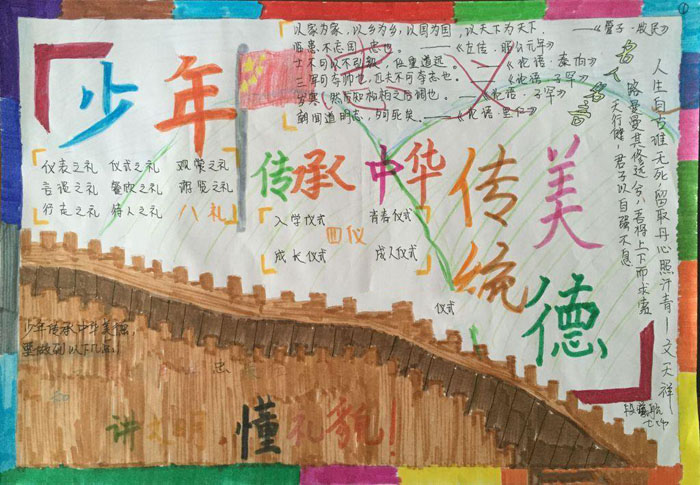 以家为家，以乡为乡，以国为国，以天下为天下．——《管子·牧民》
临患不忘国，忠也。——《左传·昭公元年》
士不可以不弘毅，任重道远。——《论语·泰伯》
三军可夺帅也，匹夫不可夺志也。——《论语·子罕》
岁寒，然后知松柏之后凋也。——《论语·子罕》
朝闻道，夕死矣。——《论语·里仁》
名人名言
人生自古谁无死，留取丹心照汗青——文天祥
路曼曼其修远兮，吾将上下而求索
天行健，君子以自强不息
少年
传承中华
传统
美德
仪表之礼 仪式之礼 观赏之礼
言谈之礼 餐饮之礼 游览之礼
行走之礼 待人之礼 八礼
入学仪式 青春仪式
四仪
成长仪式 成人仪式
仪式
少年传承中华美德，
要做到以下几点！
忠
讲文明 懂礼貌！